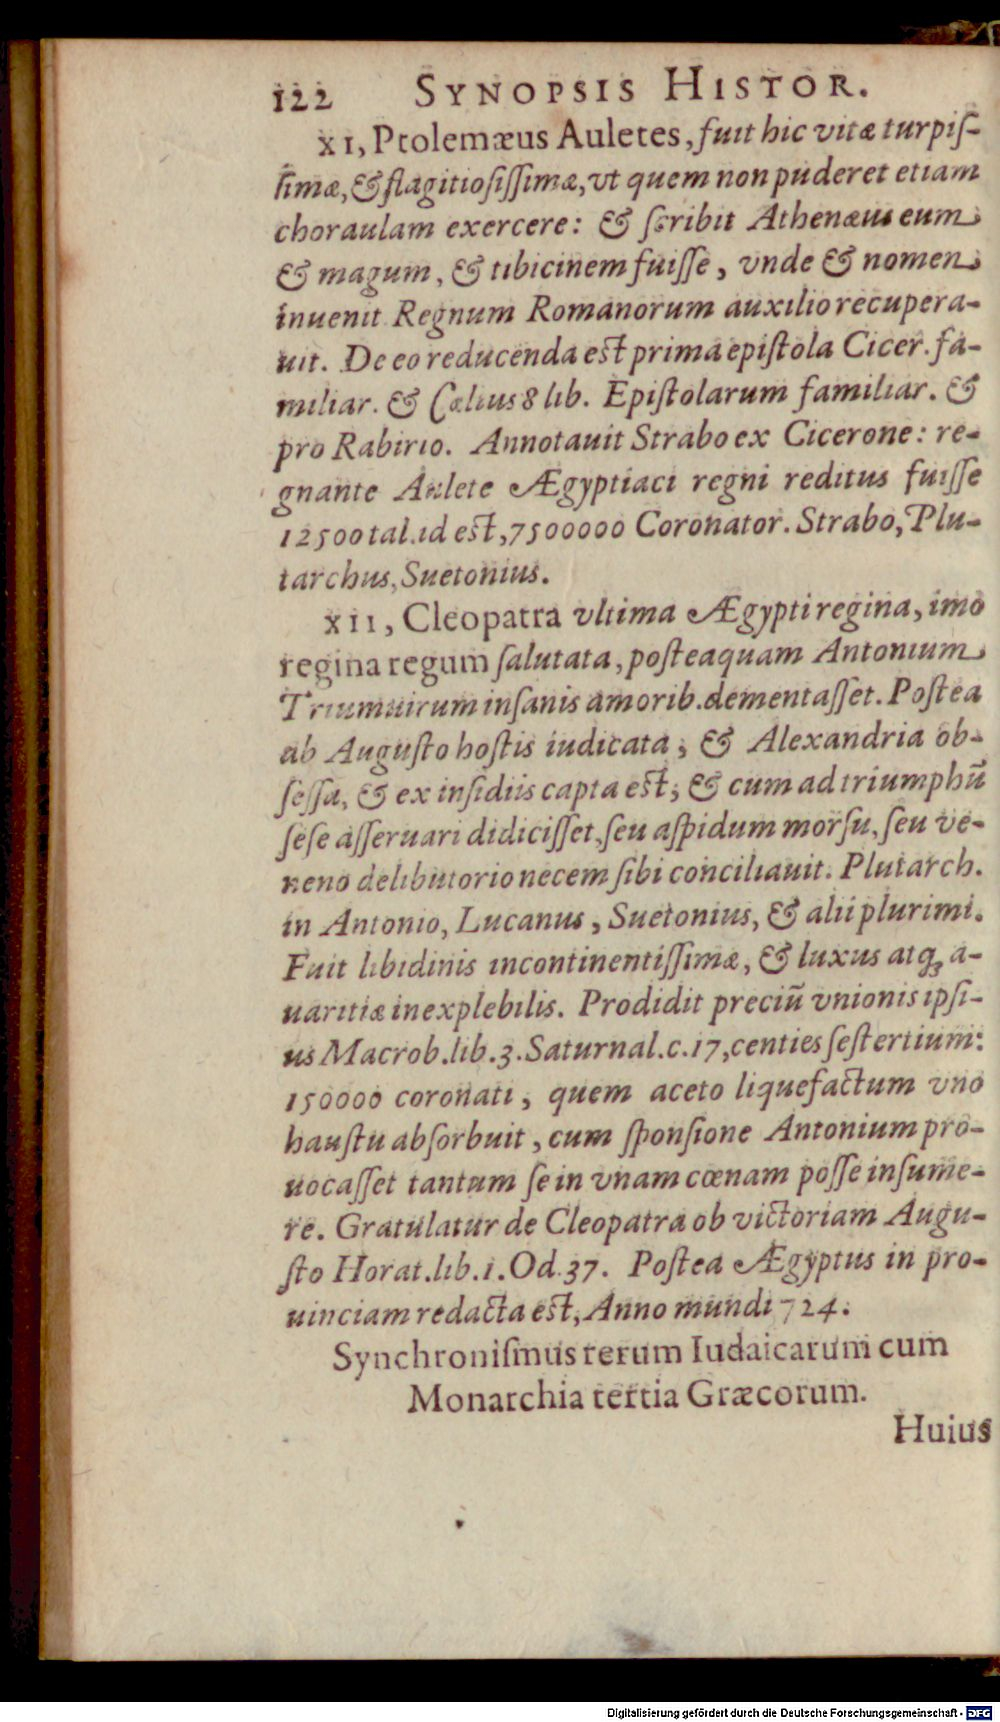 122 SYNOPSIS HISTOR.
XI, Ptolemæus Auletes, fuit hic vitæ turpiſ-
ſimæ, & flagitioſiſſimæ, vt quem non puderet etiam
choraulam exercere: & ſcribit Athenæus eum
& magum, & tibicinem fuiſſe, vnde & nomen
inuenit Regnum Romanorum auxilio recupera-
uit. De eo reducenda eſt prima epiſtola Cicer. fa-
miliar. & Cælius 8 lib. Epiſtolarum familiar. &
pro Rabirio. Annotauit Strabo ex Cicerone: re-
gnante Aulete Ægyptiaci regni reditus fuiſſe
12500 tal. id eſt, 7500000 Coronator. Strabo, Plu-
tarchus, Suetonius.
XII, Cleopatra vltima Ægypti regina, imo
regina regum ſalutata, poſteaquam Antonium
Triumuirum inſanis amorib. dementaſſet. Poſtea
ab Auguſto hoſtis iudicata; & Alexandria ob-
ſeſſa, & ex inſidiis capta eſt; & cum ad triumphū
ſeſe aſſeruari didiciſſet, ſeu aſpidum morſu, ſeu ve-
neno delibutorio necem ſibi conciliauit. Plutarch.
in Antonio, Lucanus, Suetonius, & alii plurimi.
Fuit libidinis incontinentiſſimæ, & luxus atq; a-
uaritiæ inexplebilis. Prodidit preciū vnionis ipſi-
us Macrob. lib. 3. Saturnal. c. 17, centies ſeſtertium:
150000 coronati, quem aceto liquefactum vno
hauſtu abſorbuit, cum ſponſione Antonium pro-
uocaſſet tantum ſe in vnam cœnam poſſe inſume-
re. Gratulatur de Cleopatra ob victoriam Augu-
ſto Horat. lib. 1. Od. 37. Poſtea Ægyptus in pro-
uinciam redacta eſt, Anno mundi 724.
Synchroniſmus rerum Iudaicarum cum
Monarchia tertia Græcorum.
Huius
Digitalisierung gefördert durch die Deutsche Forschungsgemeinschaft - DFG